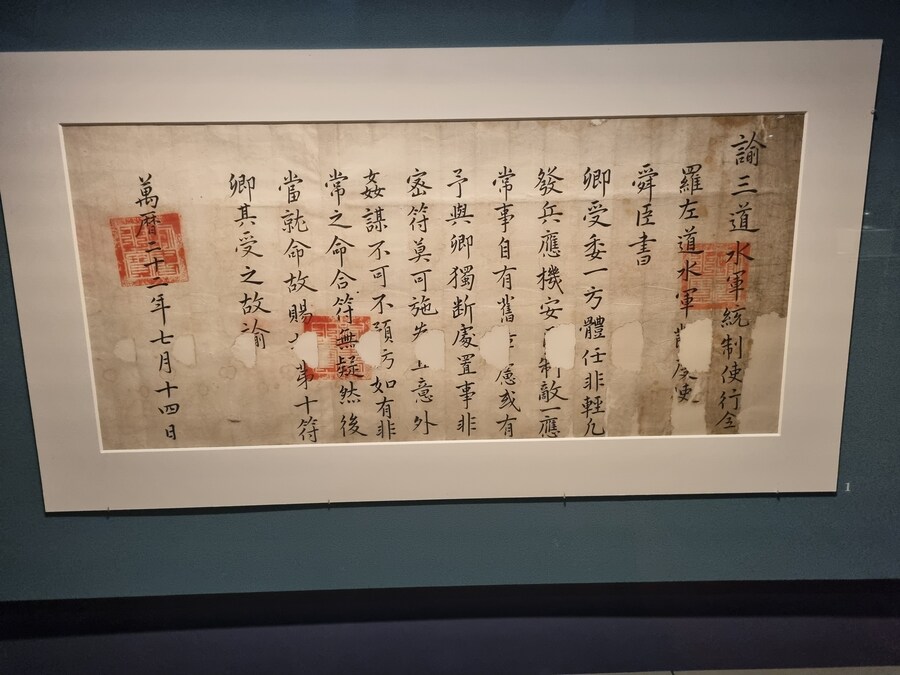 諭三道水軍統制使行全
羅左道水軍 度使
舜臣書
卿受委一方體任非輕凡
發兵應機安 制敵一應
常事自有舊 慮或有
予與卿獨斷處置事非
密符莫可施 意外
姦謀不可不預方如有非
常之命合符無疑然後
當就命故賜 第十符
卿其受之故諭
萬曆二十二年七月十四日
1